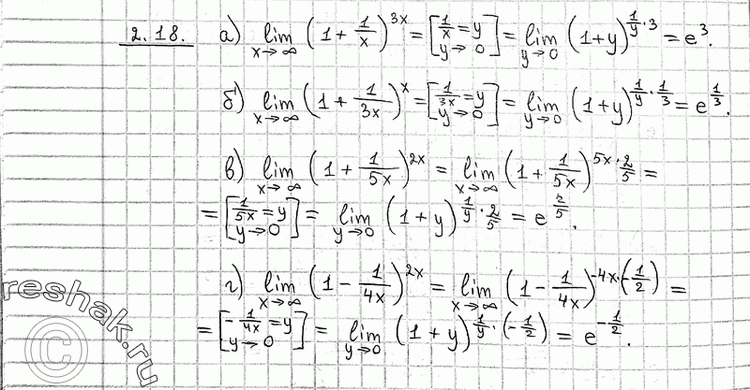 2.18. а) lim x→∞ (1 + 1/x)^3x = [1/x = y y→0] = lim y→0 (1+y)^(1/y·3) = e^3.
б) lim x→∞ (1 + 1/3x)^x = [1/3x = y y→0] = lim y→0 (1+y)^(1/y·1/3) = e^(1/3).
в) lim x→∞ (1 + 1/5x)^2x = lim x→∞ (1 + 1/5x)^(5x·2/5) =
= [1/5x = y y→0] = lim y→0 (1+y)^(1/y·2/5) = e^(2/5).
г) lim x→∞ (1 - 1/4x)^2x = lim x→∞ (1 - 1/4x)^(-4x·(-1/2)) =
= [-1/4x = y y→0] = lim y→0 (1+y)^(1/y·(-1/2)) = e^(-1/2).
reshak.ru
©